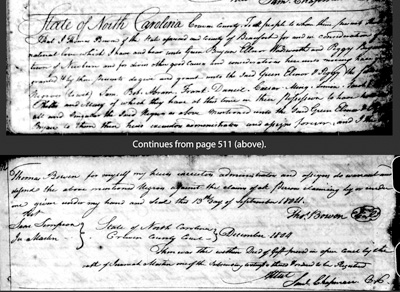 State of North Carolina Craven County To all people to whom these presents
That I Thomas Bowen of the State aforesaid and County of Beaufort for and in consideration of
natural love which I have and bear unto Green Bryan Elenor Wadsworth and Peggy Bryan
Town of Newbern and for divers other good Causes and considerations hereunto moving have
granted & by these presents do give and grant unto the said Green Elenor & Peggy the
Negroes Sam Bob Abram Frank Daniel Caesar
Phillis and Mary of which they have at this time in their possession to have
all and singular the said Negroes as above mentioned unto the said Green Elenor &
Bryan to them their heirs executors administrators and assigns forever, and I the
Continues from page 511 (above).
Thomas Bowen for myself my heirs executors administrators and assigns do warrant and
defend the above mentioned Negroes against the claim of all persons claiming by or under
me given under my hand and Seal this 13th day of September 1804
Test
Thos. Bowen Seal
Jas Simpson
Jn Martin
State of North Carolina
Craven County Court
December 1804
Then was the within Deed of Gift proved in open Court by the
oath of Jeremiah Martin one of the subscribing witnesses thereto Ordered to be Registered
Attest
Saml. Chapman Clk